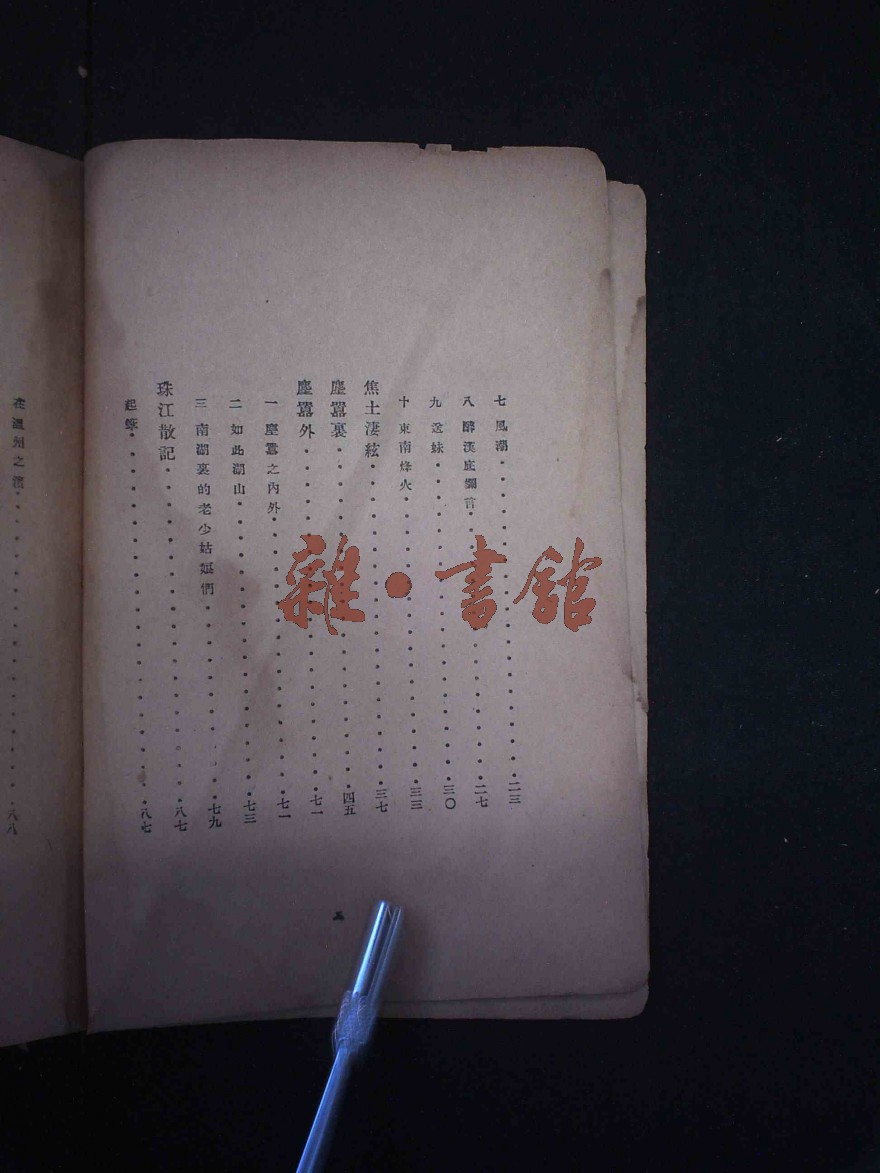 七 風潮・・・二三
八 醉漢底讕言・・・二七
九 送妹・・・三〇
十 東南烽火・・・三三
焦土淒絃・・・三七
塵囂裏・・・四五
塵囂外・・・七一
一 塵囂之內外・・・七一
二 如此湖山・・・七三
三 南湖裏的老少姑娘們・・・七九
珠江散記・・・八七
起蘇・・・八七
在溫州之濱・・・八八
雜・書館